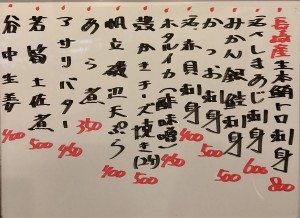 長崎産 生本鮪トロ刺身 800
しまあじ刺身 600
みかん銀鮭刺身 500
かつお刺身 500
赤貝刺身 400
ホタルイカ(酢味噌) 450
かきチーズ焼き 500
帆立磯辺天ぷら 400
あら煮 350
アサリバター 450
若筍土佐煮 500
谷中生姜 400